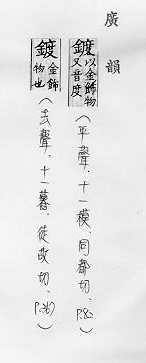 廣韻
鍍以金飾物又音度（平聲、十一模、同都切、P.82）
鍍金飾物也（去聲、十一暮、徒故切、P.367）